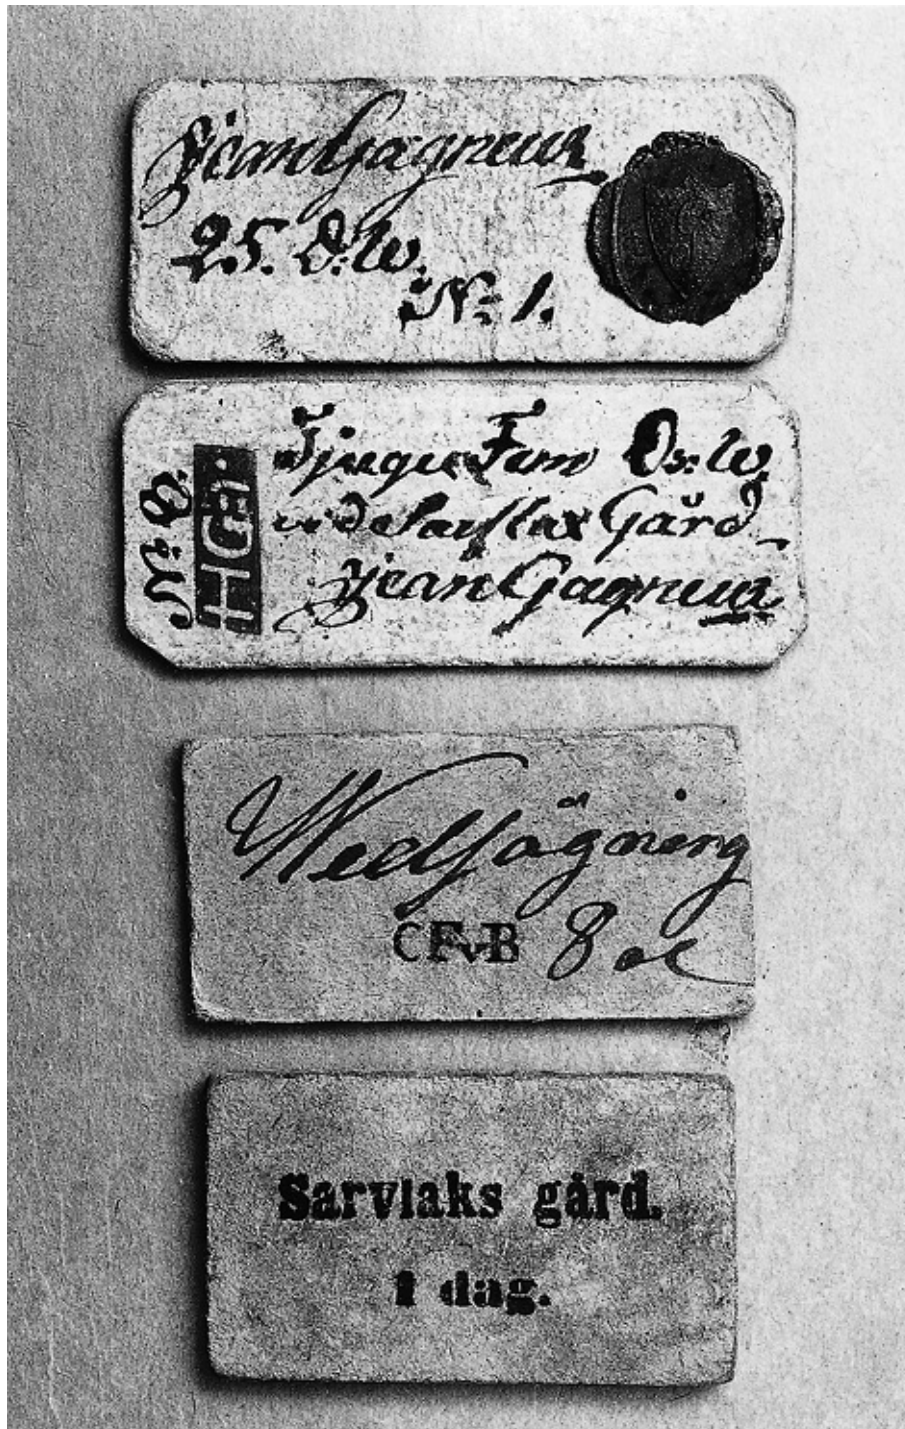 Jean Gagneur
25. Ö:W.
N: 1.
Tjugu Fem Ör: W.
vid Sarflax Gård
Jean Gagneur
N: 8.
HGB
Wedsågning
CFvB 8 öl
Sarvlaks gård.
1 dag.